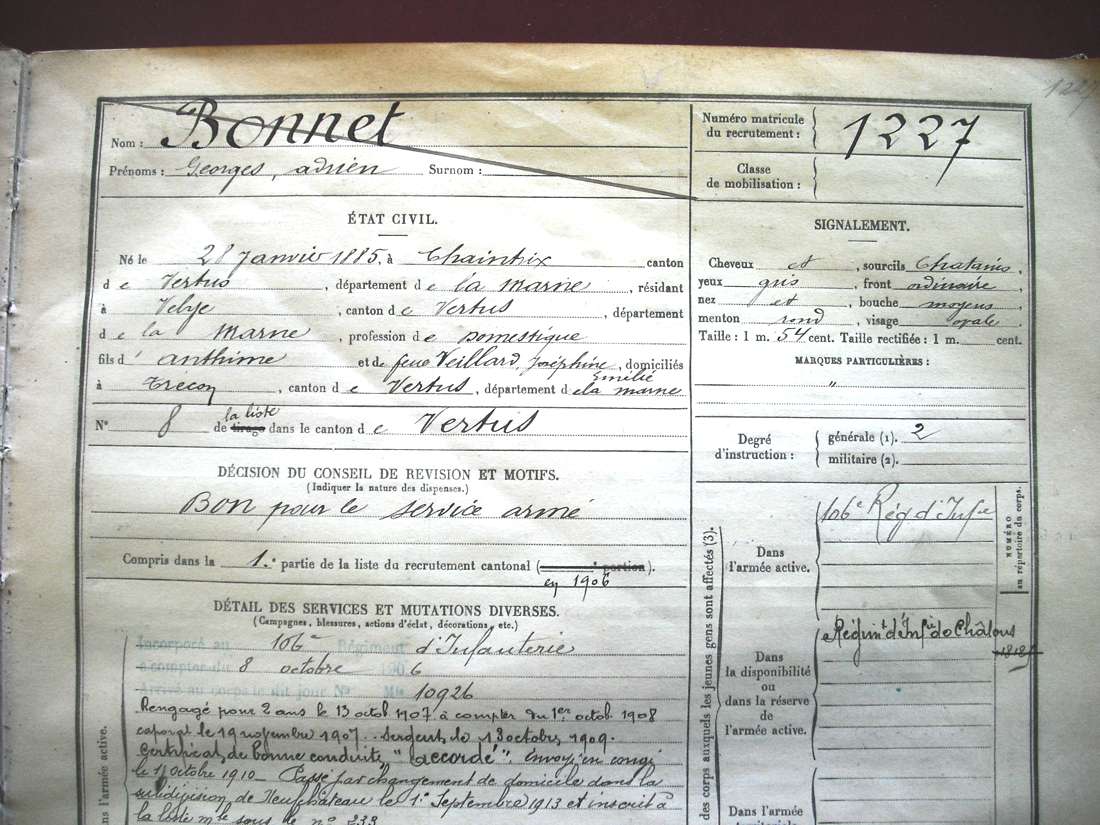 1227
Nom : Bonnet
Prénoms : Georges, adrien Surnom :
Numéro matricule du recrutement : 1227
Classe de mobilisation :
ÉTAT CIVIL.
Né le 28 Janvier 1885, à Chaintrix canton
de Vertus, département de la Marne, résidant
à Velye, canton de Vertus, département
de la Marne, profession de Domestique
fils d'anthime et de feue Veillard, Joséphine Emilie, domiciliés
à Trecon, canton de Vertus, département de la Marne
N° 8 de tirage la liste dans le canton de Vertus
DÉCISION DU CONSEIL DE REVISION ET MOTIFS.
(Indiquer la nature des dispenses.)
Bon pour le service armé
Compris dans la 1e partie de la liste du recrutement cantonal (portion).
en 1906
DÉTAIL DES SERVICES ET MUTATIONS DIVERSES.
(Campagnes, blessures, actions d'éclat, décorations, etc.)
Incorporé au 106e Régiment d'Infanterie
à compter du 8 octobre 1906
Arrivé au corps le dit jour No Mle 10926
Rengagé pour 2 ans le 13 octob 1907 à compter du 1er octob. 1908
caporal le 19 novembre 1907. Sergent, le 13 octobre 1909.
Certificat de bonne conduite "accordé". Envoyé en congé
le 1 octobre 1910 Passé par changement de domicile dans la
subdivision de Neufchâteau le 1er Septembre 1913 et inscrit à
la liste mle sous le no 233
SIGNALEMENT.
Cheveux et, sourcils Chatains,
yeux gris, front ordinaire
nez et, bouche moyens
menton rond, visage ovale.
Taille : 1 m. 54 cent. Taille rectifiée : 1 m. cent.
MARQUES PARTICULIÈRES :
"
Degré d'instruction :
générale (1). 2
militaire (2).
NUMÉRO au répertoire du corps.
des corps auxquels les jeunes gens sont affectés (3).
Dans l'armée active.
106e Rég d'Infie
Dans la disponibilité ou dans la réserve de l'armée active.
Régimt d'Infie de Châlons
Dans l'armée
ns l'armée active.